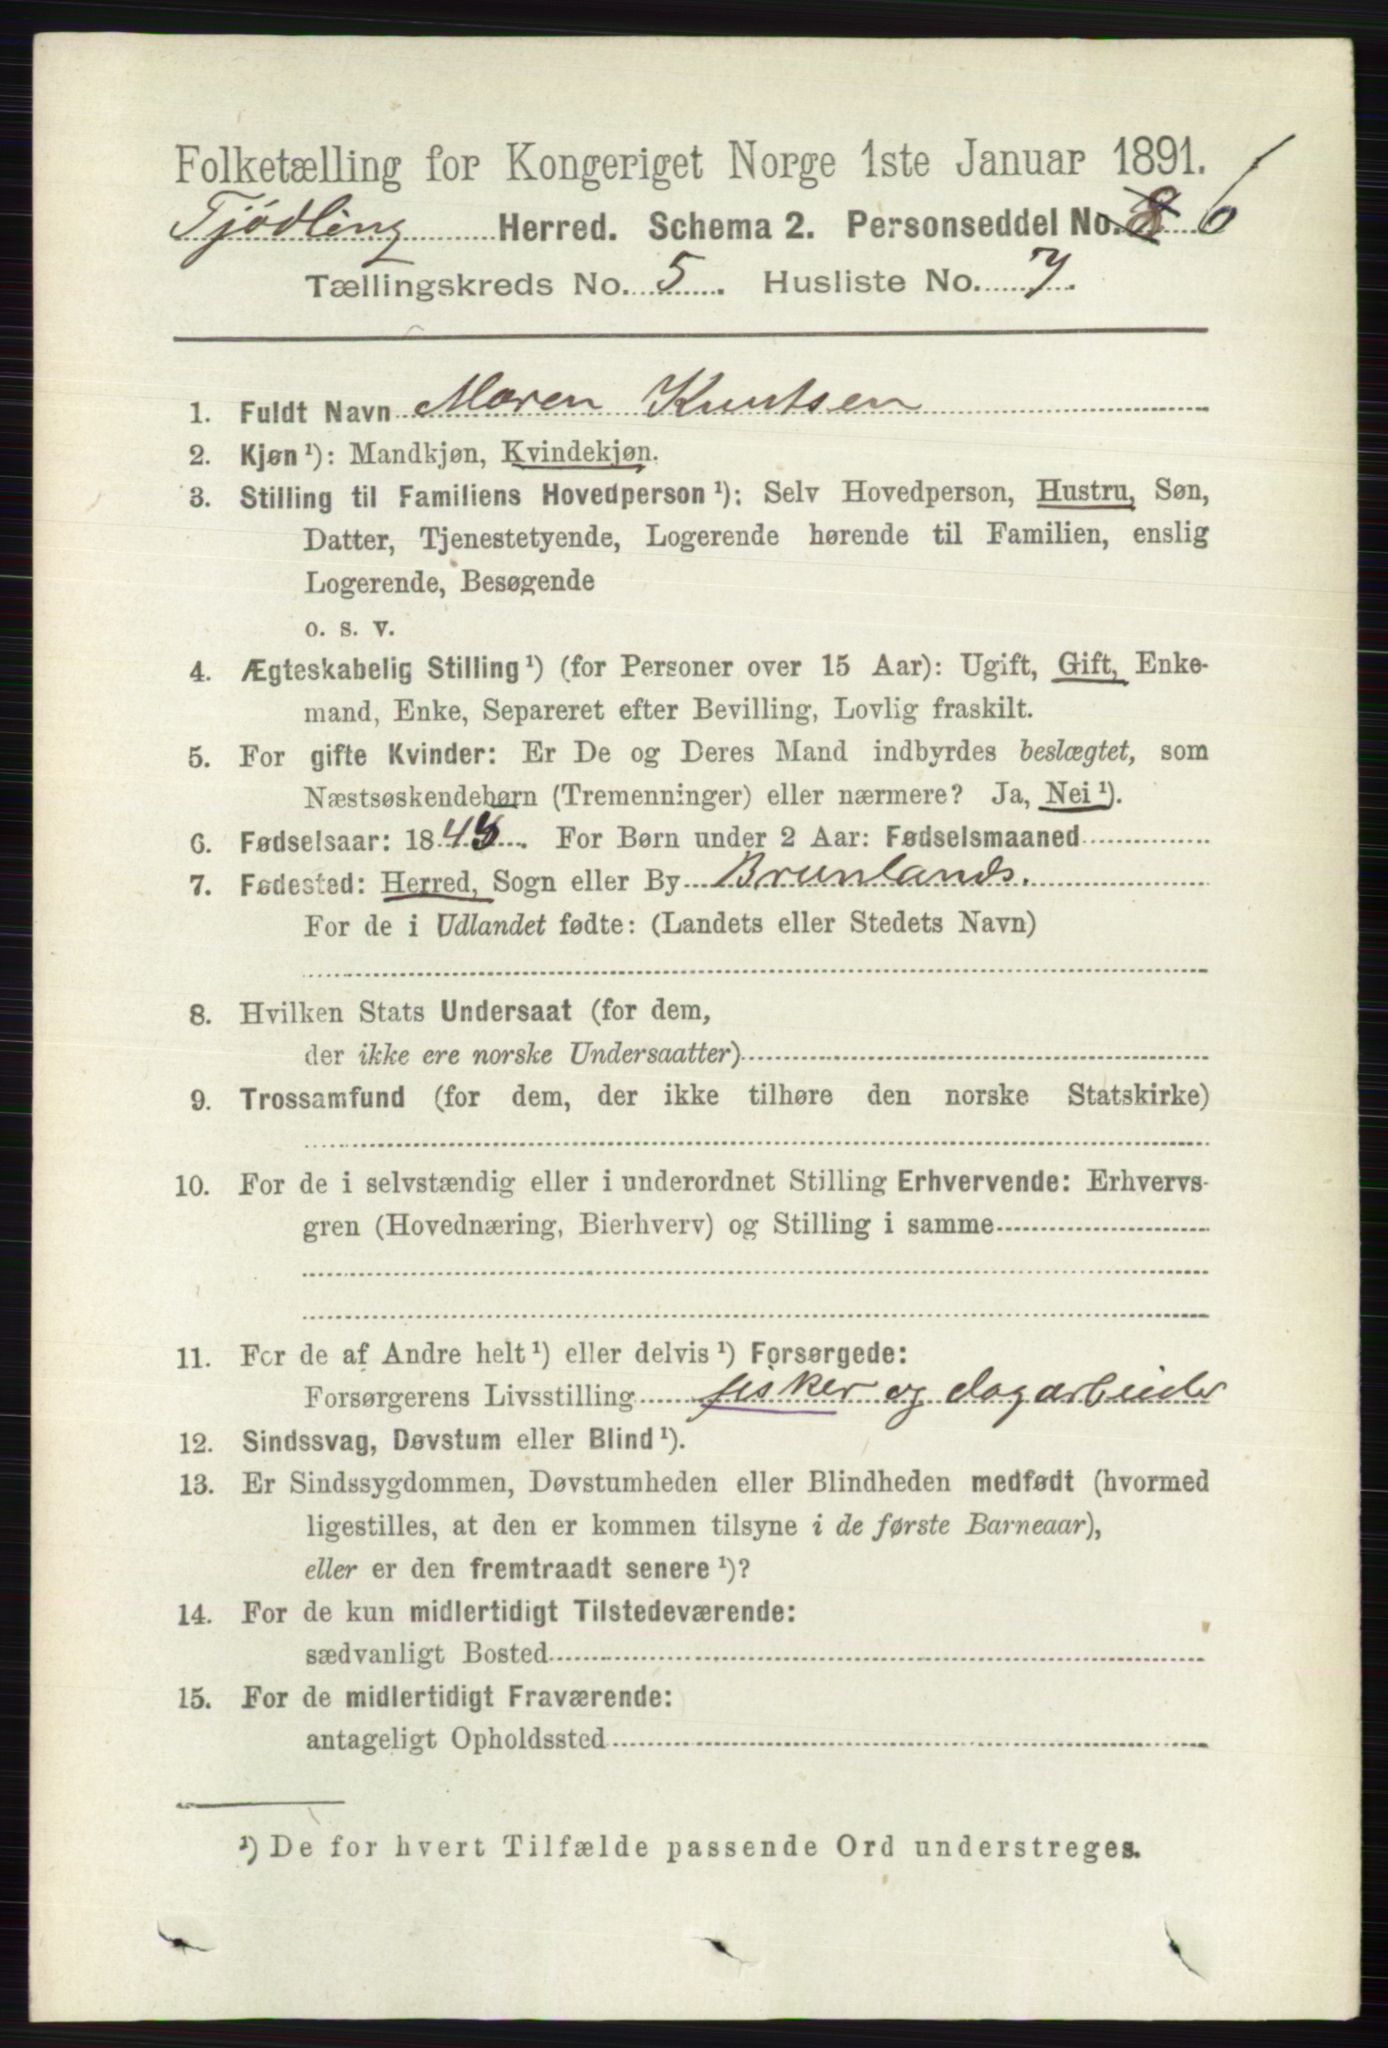 Folketælling for Kongeriget Norge 1ste Januar 1891.
Tjödling Herred. Schema 2. Personseddel No. 8 6
Tællingskreds No. 5. Husliste No. 7.
1. Fuldt Navn Maren Knutsen
2. Kjøn¹): Mandkjøn, Kvindekjøn.
3. Stilling til Familiens Hovedperson¹): Selv Hovedperson, Hustru, Søn,
Datter, Tjenestetyende, Logerende hørende til Familien, enslig
Logerende, Besøgende
o. s. v.
4. Ægteskabelig Stilling¹) (for Personer over 15 Aar): Ugift, Gift, Enke-
mand, Enke, Separeret efter Bevilling, Lovlig fraskilt.
5. For gifte Kvinder: Er De og Deres Mand indbyrdes beslægtet, som
Næstsøskendebørn (Tremenninger) eller nærmere? Ja, Nei¹).
6. Fødselsaar: 184 . For Børn under 2 Aar: Fødselsmaaned
7. Fødested: Herred, Sogn eller By Brunlands.
For de i Udlandet fødte: (Landets eller Stedets Navn)
8. Hvilken Stats Undersaat (for dem,
der ikke ere norske Undersaatter)
9. Trossamfund (for dem, der ikke tilhøre den norske Statskirke)
10. For de i selvstændig eller i underordnet Stilling Erhvervende: Erhvervs-
gren (Hovednæring, Bierhverv) og Stilling i samme
11. For de af Andre helt¹) eller delvis¹) Forsørgede:
Forsørgerens Livsstilling fisker og dagarbeider
12. Sindssvag, Døvstum eller Blind¹).
13. Er Sindssygdommen, Døvstumheden eller Blindheden medfødt (hvormed
ligestilles, at den er kommen tilsyne i de første Barneaar),
eller er den fremtraadt senere¹)?
14. For de kun midlertidigt Tilstedeværende:
sædvanligt Bosted
15. For de midlertidigt Fraværende:
antageligt Opholdssted
¹) De for hvert Tilfælde passende Ord understreges.